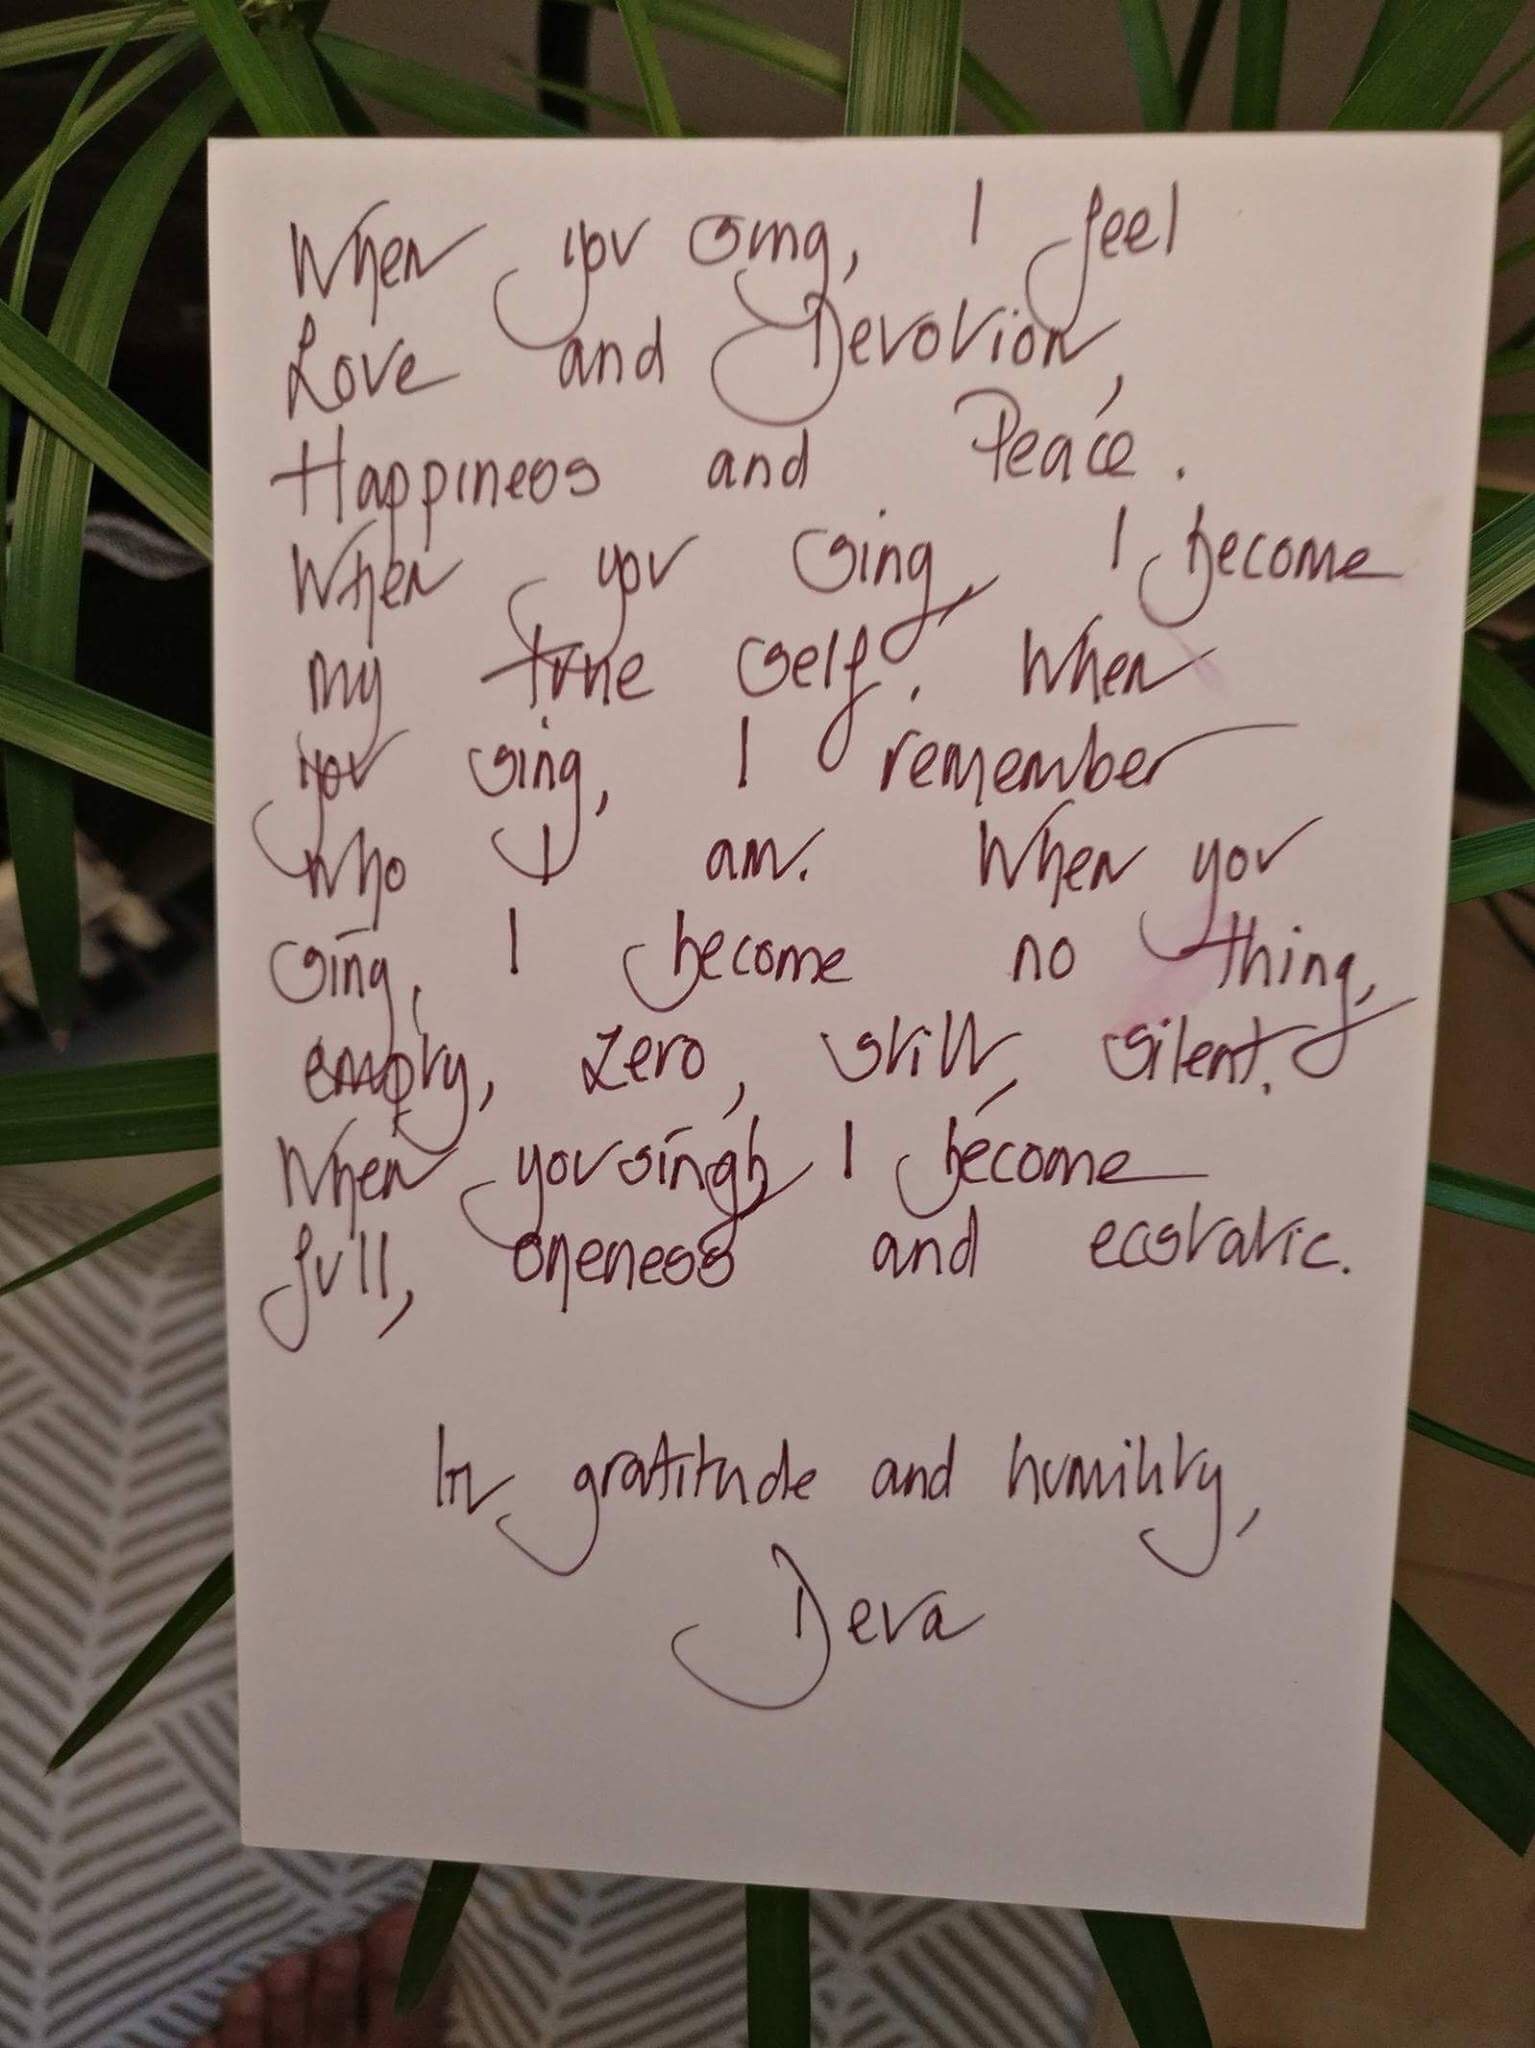 When you sing, I feel
Love and Devotion,
Happiness and Peace.
When you sing, I become
my true self. When
you sing, I remember
who I am. When you
sing, I become no thing,
empty, zero, still, silent.
When you singh, I become
full, oneness and ecstatic.
In gratitude and humility,
Deva